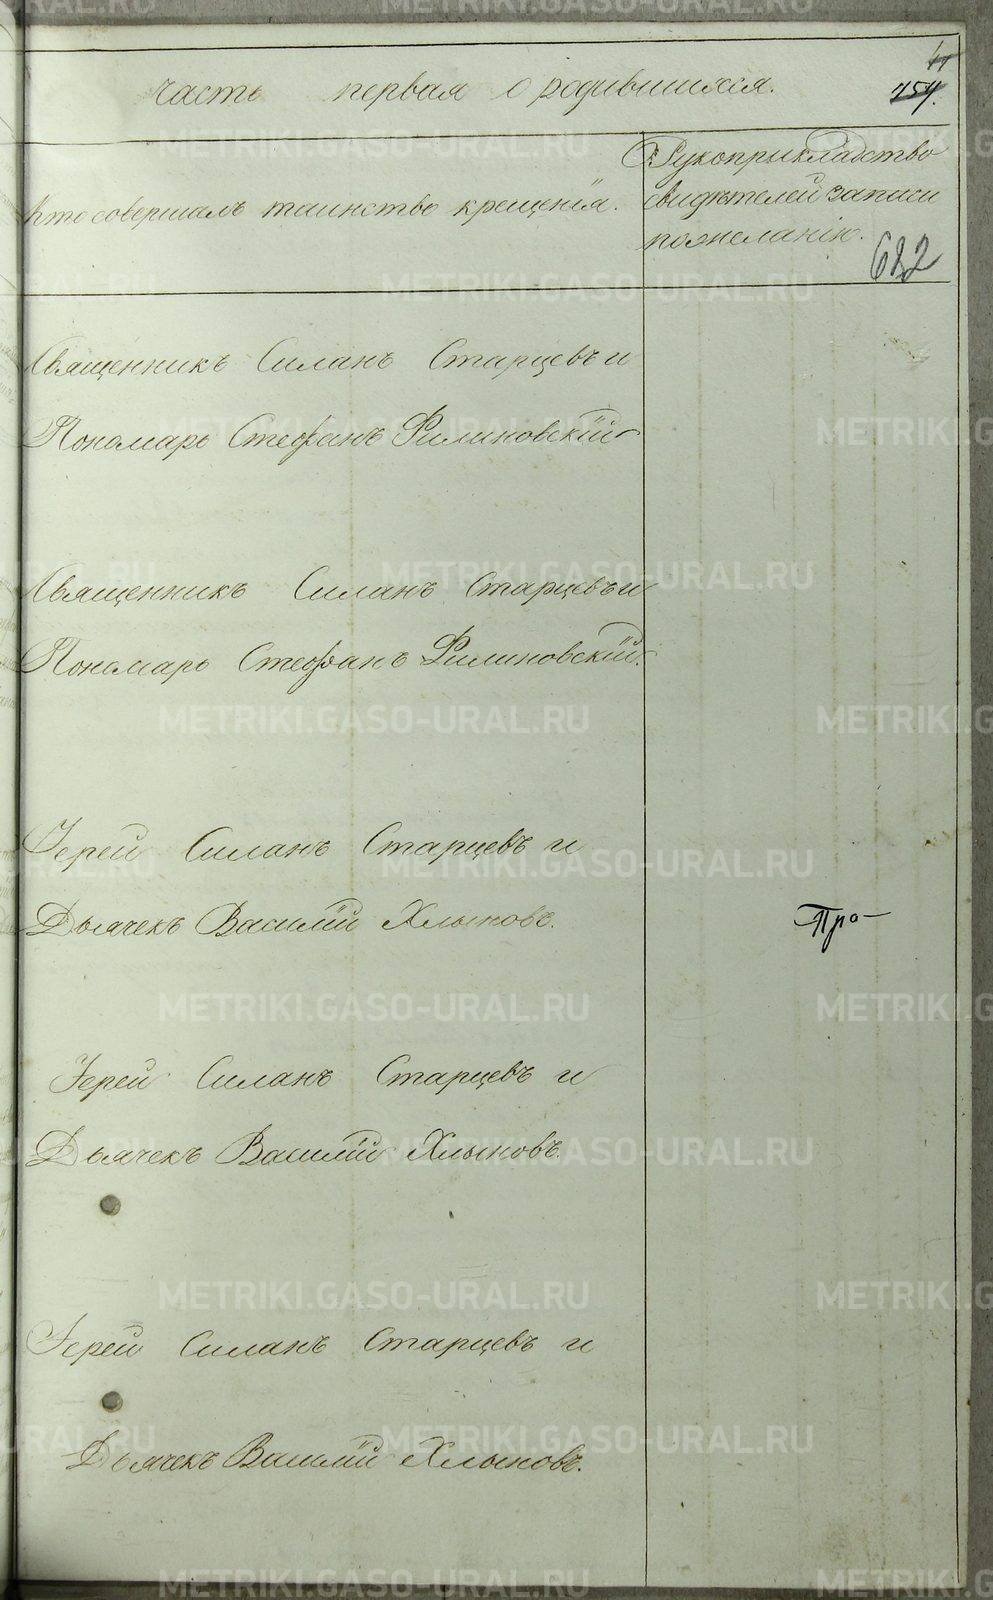 часть первая о родившихся.
454.
Кто совершалъ таинство крещенія.
Рукоприкладство
свидѣтелей записи
по желанію.
682
Священникъ Силанъ Старцевъ и
Пономарь Стефанъ Филиновскій
Священникъ Силанъ Старцевъ и
Пономарь Стефанъ Филиновскій.
Іерей Силанъ Старцевъ и
Дьячекъ Василій Хлыновъ.
Про-
Іерей Силанъ Старцевъ и
Дьячекъ Василій Хлыновъ.
Іерей Силанъ Старцевъ и
Дьячекъ Василій Хлыновъ.
METRIKI.GASO-URAL.RU